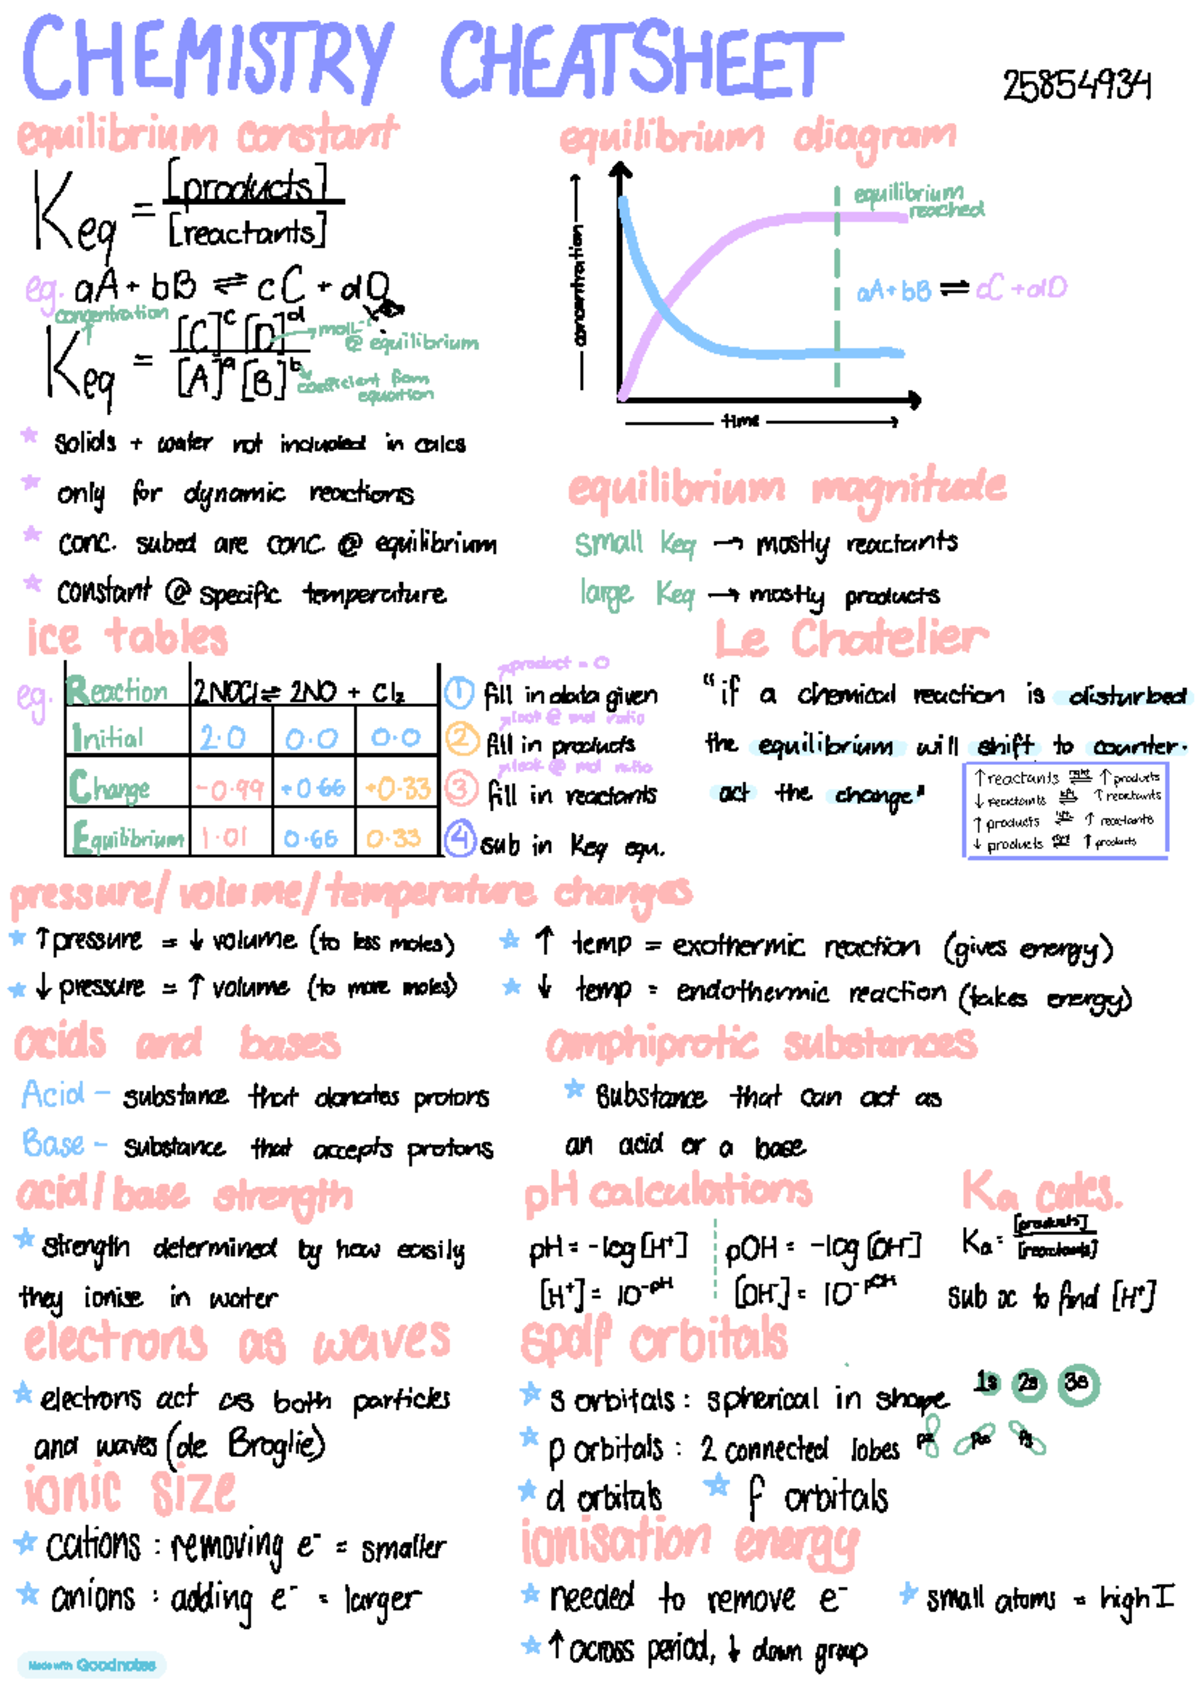 CHEMISTRY CHEATSHEET
25854934
equilibrium constant
Keq = [products]
[reactants]
eg. aA + bB ⇌ cC + dD
concentration
Keq = [C]ᶜ [D]ᵈ
[A]ᵃ [B]ᵇ
molL⁻¹
@ equilibrium
coefficient from
equation
* solids + water not included in calcs
* only for dynamic reactions
* conc. subed are conc. @ equilibrium
* constant @ specific temperature
equilibrium diagram
concentration
time
equilibrium
reached
aA + bB ⇌ cC + dD
equilibrium magnitude
small Keq → mostly reactants
large Keq → mostly products
ice tables
eg.
Reaction 2NOCl ⇌ 2NO + Cl₂
Initial 2.0 0.0 0.0
Change -0.99 +0.66 +0.33
Equilibrium 1.01 0.66 0.33
product = 0
① fill in data given
look @ mol ratio
② fill in products
look @ mol ratio
③ fill in reactants
④ sub in Keq equ.
Le Chatelier
"if a chemical reaction is disturbed
the equilibrium will shift to counter-
act the change"
↑ reactants right ⇌ ↑ products
↓ reactants left ⇌ ↑ reactants
↑ products left ⇌ ↑ reactants
↓ products right ⇌ ↑ products
pressure/volume/temperature changes
* ↑ pressure = ↓ volume (to less moles)
* ↓ pressure = ↑ volume (to more moles)
* ↑ temp = exothermic reaction (gives energy)
* ↓ temp = endothermic reaction (takes energy)
acids and bases
Acid - substance that donates protons
Base - substance that accepts protons
amphiprotic substances
* substance that can act as
an acid or a base
acid/base strength
* strength determined by how easily
they ionise in water
pH calculations
pH = -log[H⁺]
[H⁺] = 10⁻ᵖᴴ
pOH = -log[OH⁻]
[OH⁻] = 10⁻ᵖᴼᴴ
Ka calcs.
Ka = [products]
[reactants]
sub x to find [H⁺]
electrons as waves
* electrons act as both particles
and waves (de Broglie)
spdf orbitals
* s orbitals : spherical in shape
1s 2s 3s
* p orbitals : 2 connected lobes
pz px py
* d orbitals * f orbitals
ionic size
* cations : removing e⁻ = smaller
* anions : adding e⁻ = larger
ionisation energy
* needed to remove e⁻
* small atoms = high I
* ↑ across period, ↓ down group
Made with Goodnotes